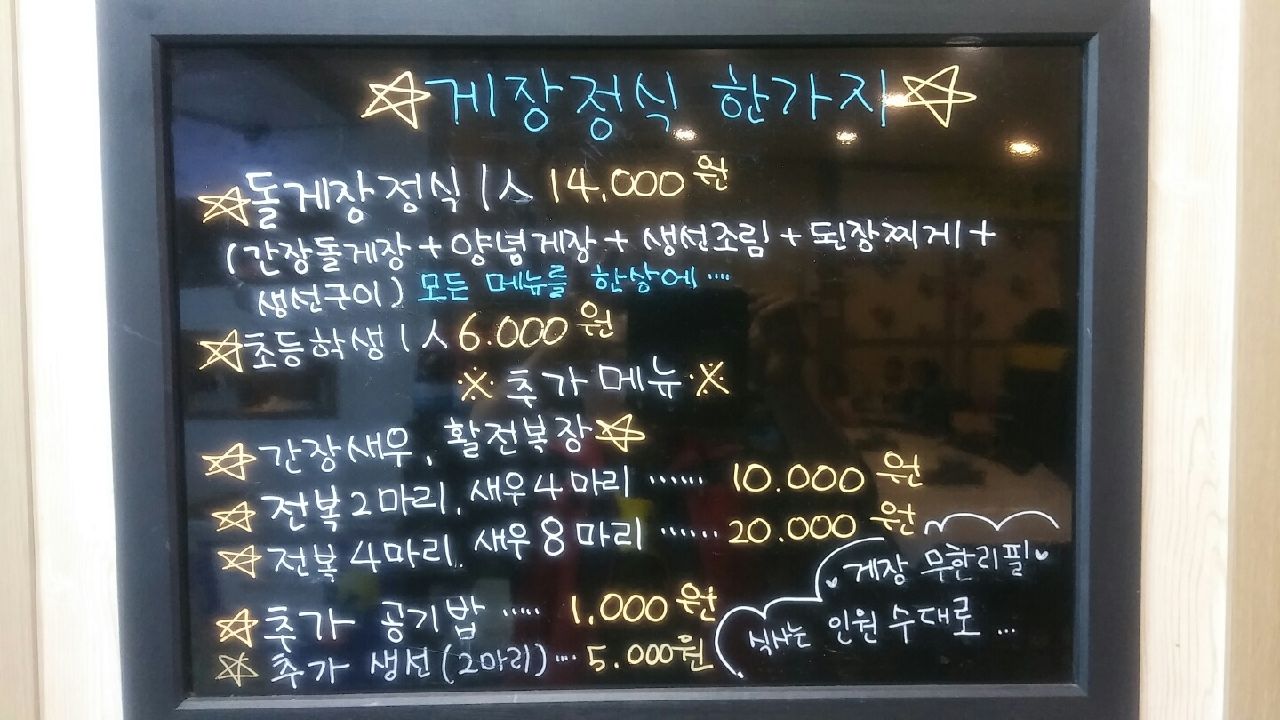 ☆게장정식 한가지☆
☆돌게장정식 1人 14,000원
(간장돌게장 + 양념게장 + 생선조림 + 된장찌게 +
생선구이) 모든 메뉴를 한상에 ····
☆초등학생 1人 6.000원
※ 추가메뉴 ※
☆간장새우, 활전복장☆
☆전복2마리, 새우4마리 ······ 10.000원
☆전복4마리, 새우8마리 ······ 20.000원
게장 무한리필
☆추가 공기밥 ····· 1,000원
식사는 인원수대로 ...
☆추가 생선(2마리) ···· 5.000원